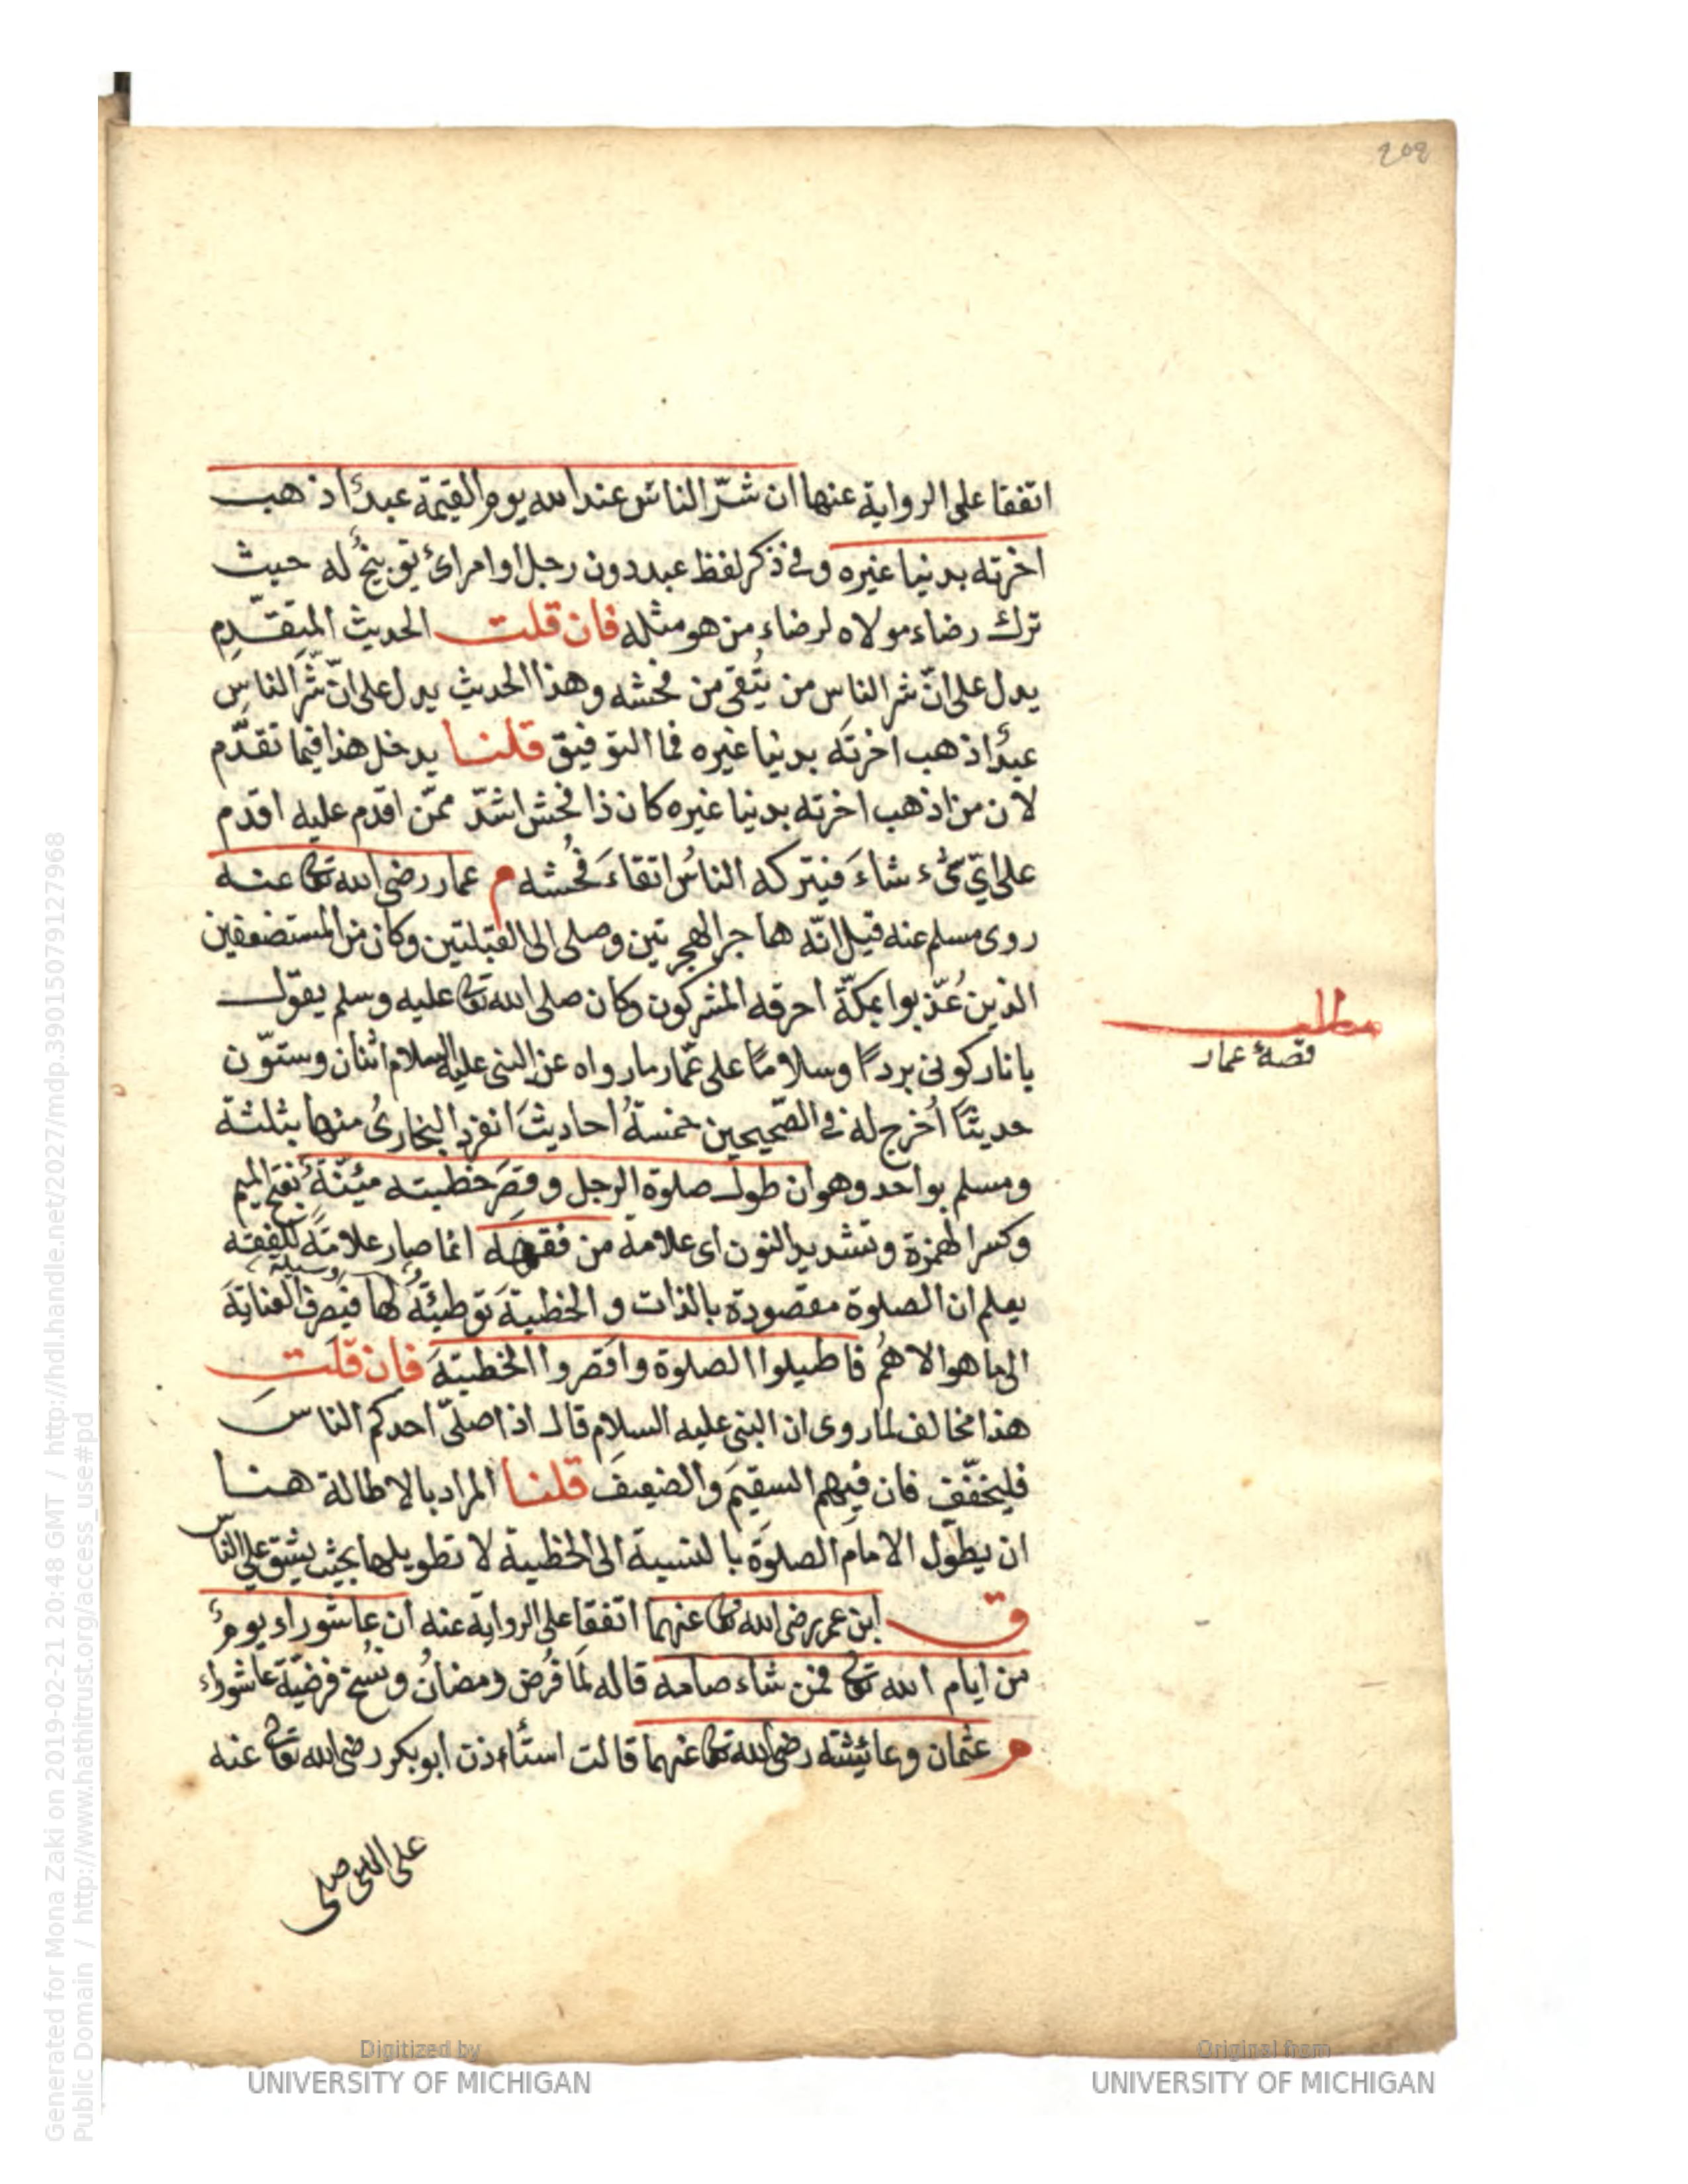 202
اتفقا على الرواية عنها ان شرّ الناس عند الله يوم القيمة عبدٌ اذهب
اخرته بدنيا غيره وفي ذكر لفظ عبد دون رجل او امرائ توبيخٌ له حيث
ترك رضاء مولاه لرضاء من هو مثله فان قلت الحديث المتقدّم
يدل على انّ شر الناس من يُتقى من فحشه وهذا الحديث يدل على انّ شرّ الناس
عبدٌ اذهب اخرتَه بدنيا غيره فما التوفيق قلنا يدخل هذا فيما تقدّم
لان من اذهب اخرته بدنيا غيره كان ذا فحش اشدّ ممّن اقدم عليه اقدم
على ايّ شئ شاءَ فيتركه الناسُ اتقاءَ فُحشه م عمار رضى الله تعا عنه
روى مسلم عنه قيل انّه هاجر الهجرتين وصلى الى القبلتين وكان من المستضعفين
الذين عُذّبوا بمكّة احرقه المشركون وكان صلى الله تعا عليه وسلم يقول
يا نار كونى بردًا وسلامًا على عمّار ما رواه عن النبى عليه السلام اثنان وستّون
حديثًا اُخرج له في الصّحيحين خمسةُ احاديثَ انفرد البخارىُ منها بثلثة
ومسلم بواحد وهو ان طول صلوة الرجل وقِصَرَ خطبته مئنّةٌ بفتح الميم
وكسر الهمزة وتشديد النون اى علامة من فقهه انما صار علامةً للفقه
يعلم ان الصلوة مقصودة بالذات و الخطبةَ توطيئةٌ وسيلة لها فيصرف العنايةَ
الى ما هو الاهمُ فاطيلوا الصلوة واقصروا الخطبةَ فان قلت
هذا مخالف لما روى ان النبى عليه السلام قال اذا صلىّ احدكم الناس
فليخفّف فان فيهم السقيمَ والضعيفَ قلنا المراد بالاطالة هنا
ان يطوّل الامام الصلوةَ بالنسبة الى الخطبة لا تطويلها بحيث يشق على الناس
ق ابن عمر رضى الله تعا عنهما اتفقا على الرواية عنه ان عاشوراء يومٌ
من ايام الله تعا فمن شاء صامه قاله لمّا فُرض رمضانُ ونُسخ فرضيّة عاشوراء
م عثمان وعائيشته رضى الله تعا عنهما قالت استأذن ابو بكر رضى الله تعا عنه
على النبى صلى
مطلب
قصة عمار
Generated for Mona Zaki on 2019-02-21 20:48 GMT / http://hdl.handle.net/2027/mdp.39015079127968
Public Domain / http://www.hathitrust.org/access_use#pd
Digitized by
UNIVERSITY OF MICHIGAN
Original from
UNIVERSITY OF MICHIGAN